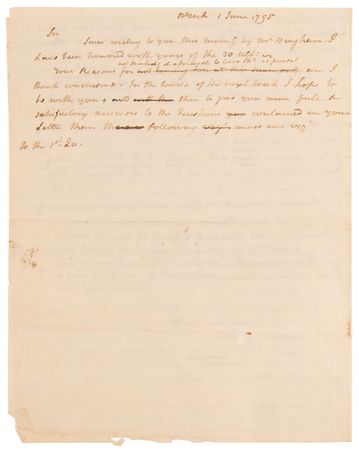 1 June 1795
Sir
Since writing to you this morning by Mr Bingham I
have been honored with yours of the 20 Ulto
not thinking it adviseable to leave at present
Your Reasons for not coming here at this moment are I
think conclusive - In the course of the next week I hope to
be with you, and then to give you more full &
satisfactory answers to the Questions contained in your
Letter than the following
To the 1st Qu.